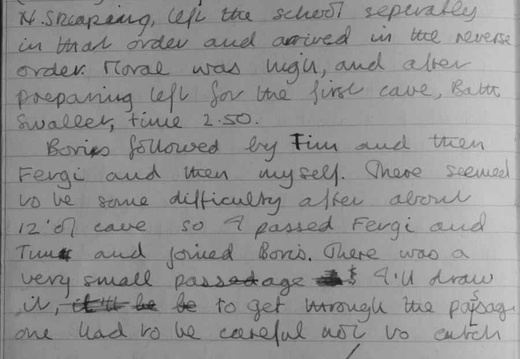 N. Skeaping, left the school seperately
in that order and arrived in the reverse
order. Moral was high, and after
preparing left for the first cave, Bath
Swallet, time 2.50.
Boris followed by Tim and then
Fergi and then myself. There seemed
to be some difficulty after about
12' of cave so I passed Fergi and
Tim and joined Boris. There was a
very small passage I'll draw
it, to get through the passage
one had to be careful not to catch